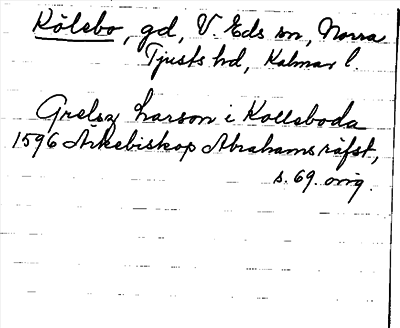 Kölsbo, gd, V. Eds sn, Norra
Tjusts hd, Kalmar l.
Grelsz Larson i Kollsboda
1596 Ärkebiskop Abrahams räfst,
s. 69. orig.